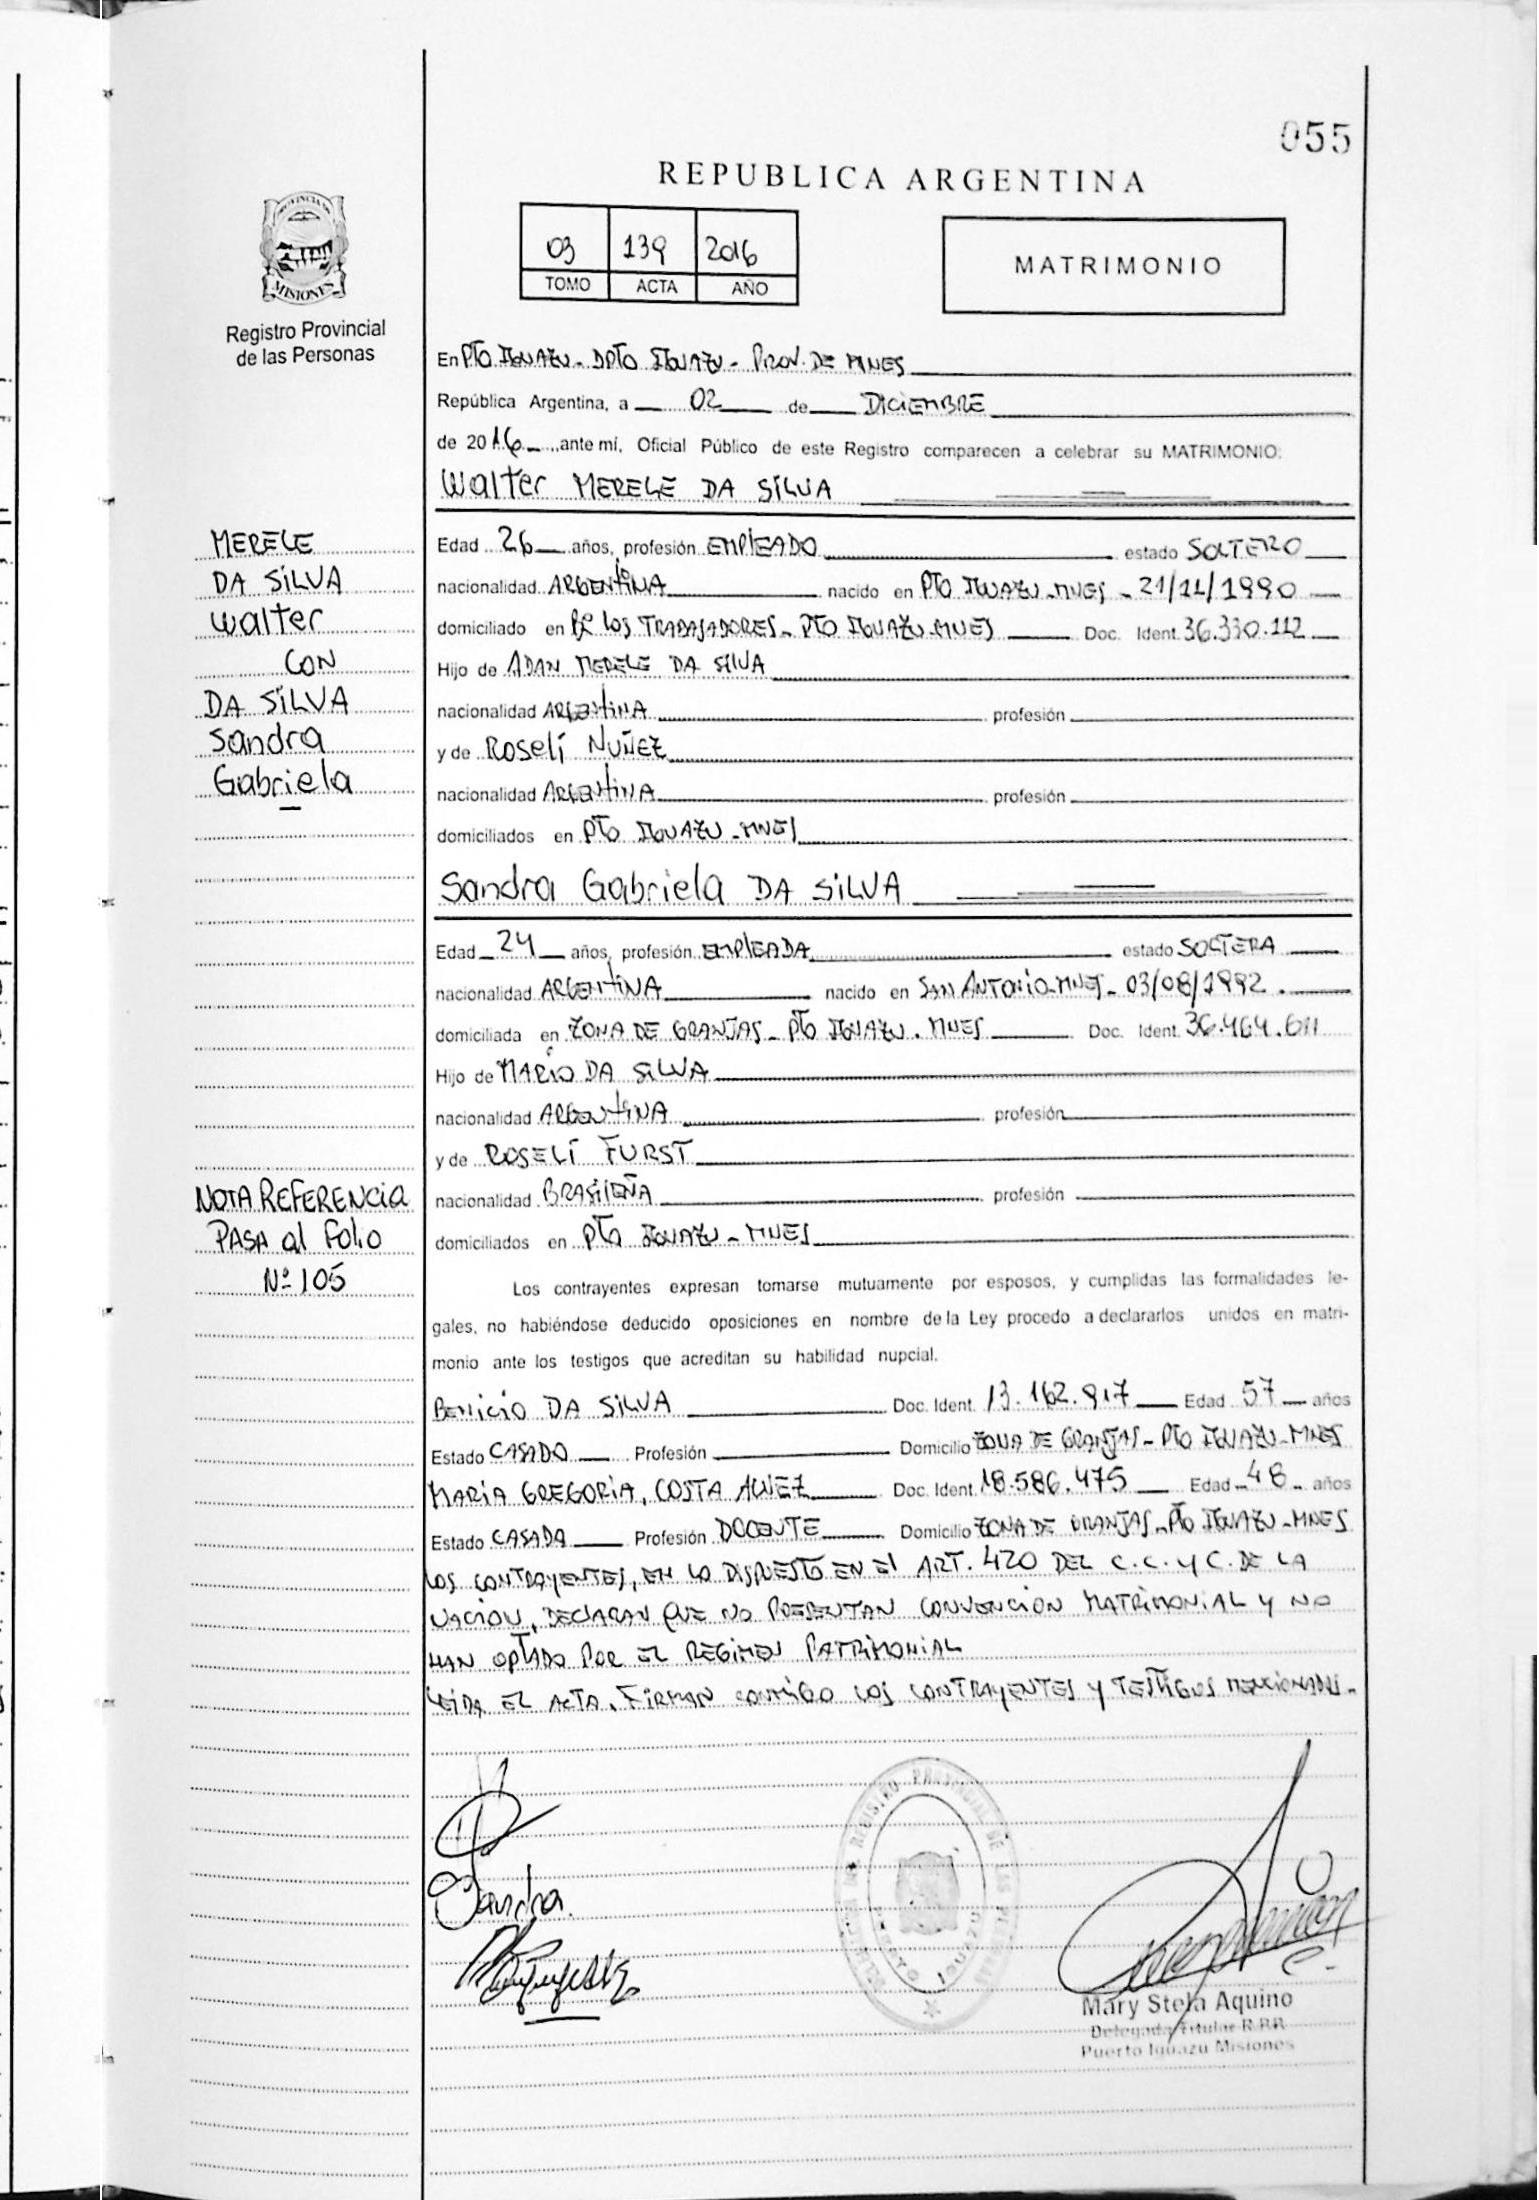 055
REPUBLICA ARGENTINA
03 139 2016
TOMO ACTA AÑO
MATRIMONIO
PROVINCIA DE
MISIONES
Registro Provincial
de las Personas
En PTO IGUAZU - DPTO IGUAZU - PROV. DE MNES
República Argentina, a 02 de DICIEMBRE
de 2016 ante mí, Oficial Público de este Registro comparecen a celebrar su MATRIMONIO:
Walter MERELE DA SILVA
MERELE
DA SILVA
Walter
CON
DA SILVA
Sandra
Gabriela
Edad 26 años, profesión EMPLEADO estado SOLTERO
nacionalidad ARGENTINA nacido en PTO IGUAZU - MNES - 21/11/1990
domiciliado en Bº LOS TRABAJADORES - PTO IGUAZU - MNES Doc. Ident. 36.330.112
Hijo de ADAN MERELE DA SILVA
nacionalidad ARGENTINA profesión
y de Roselí NUÑEZ
nacionalidad ARGENTINA profesión
domiciliados en PTO IGUAZU - MNES
Sandra Gabriela DA SILVA
Edad 24 años, profesión EMPLEADA estado SOLTERA
nacionalidad ARGENTINA nacido en SAN ANTONIO - MNES - 03/08/1992.
domiciliada en ZONA DE GRANJAS - PTO IGUAZU - MNES Doc. Ident. 36.464.611
Hijo de MARIO DA SILVA
nacionalidad ARGENTINA profesión
y de ROSELÍ FURST
nacionalidad BRASILEÑA profesión
domiciliados en PTO IGUAZU - MNES
NOTA REFERENCIA
PASA al Folio
Nº 105
Los contrayentes expresan tomarse mutuamente por esposos, y cumplidas las formalidades le-
gales, no habiéndose deducido oposiciones en nombre de la Ley procedo a declararlos unidos en matri-
monio ante los testigos que acreditan su habilidad nupcial.
BENICIO DA SILVA Doc. Ident. 13.162.917 Edad 57 años
Estado CASADO Profesión Domicilio ZONA DE GRANJAS - PTO IGUAZU - MNES
MARIA GREGORIA, COSTA ALVEZ Doc. Ident. 18.586.475 Edad 48 años
Estado CASADA Profesión DOCENTE Domicilio ZONA DE GRANJAS - PTO IGUAZU - MNES
LOS CONTRAYENTES, EN LO DISPUESTO EN El ART. 420 DEL C.C. y C. DE LA
NACION, DECLARAN QUE NO PRESENTAN CONVENCION MATRIMONIAL Y NO
HAN OPTADO POR EL REGIMEN PATRIMONIAL
LEIDA EL ACTA, FIRMAN CONMIGO LOS CONTRAYENTES Y TESTIGOS MENCIONADOS -
Sandra.
REGISTRO PROVINCIAL DE LAS PERSONAS
IGUAZU
Mary Stela Aquino
Delegada Titular R.P.P.
Puerto Iguazú Misiones